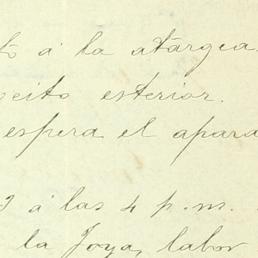 á la atárgea.
esterior.
espera el apara
á las 4 p.m.
la Joya, labor